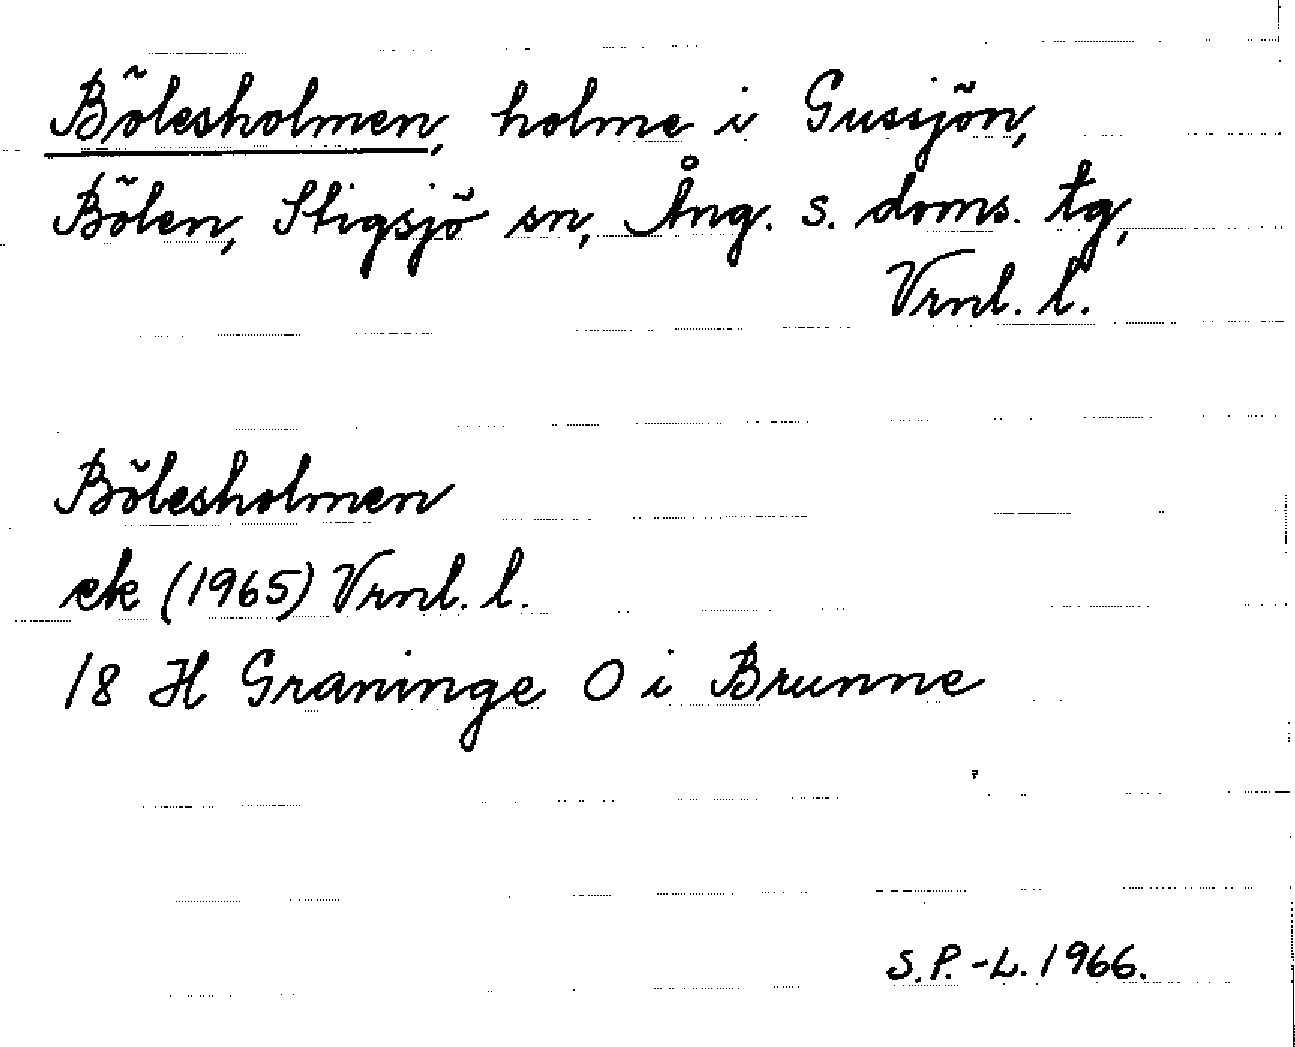 Bölesholmen, holme i Gussjön,
Bölen, Stigsjö sn, Ång. s. doms. tg,
Vrnl. l.
Bölesholmen
ek (1965) Vrnl. l.
18 H Graninge O i Brunne
S.P.-L. 1966.